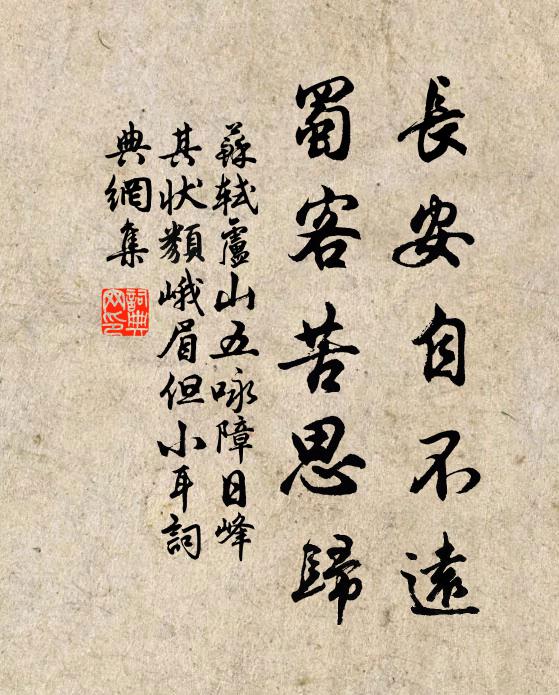 長安自不遠
蜀客苦思歸
蘇軾廬山五咏障日峰
其状類峨眉但小耳詞
典網集
詞典網印